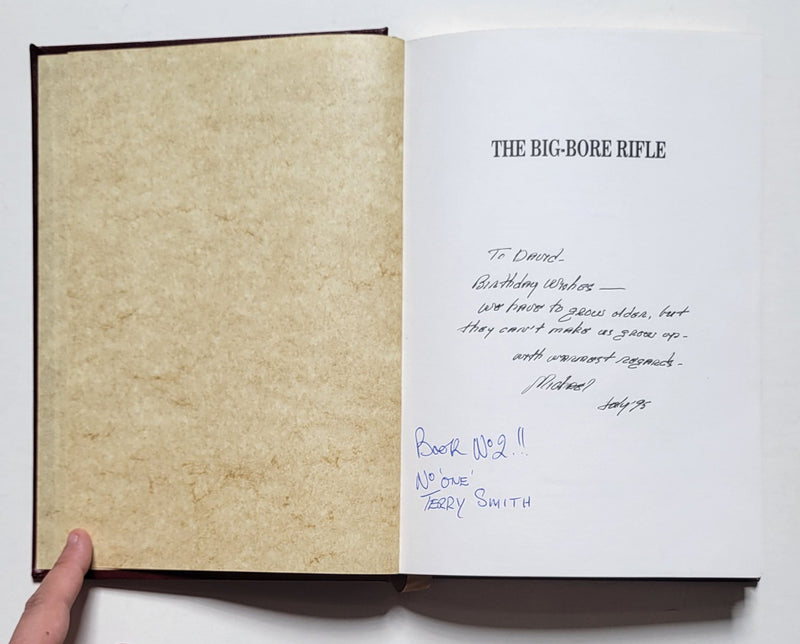 THE BIG-BORE RIFLE
To David-
Birthday Wishes —
We have to grow older, but
they can't make us grow up-
with warmest regards-
Michael
July '95
Book No 2!!
No 'ONE'
TERRY SMITH